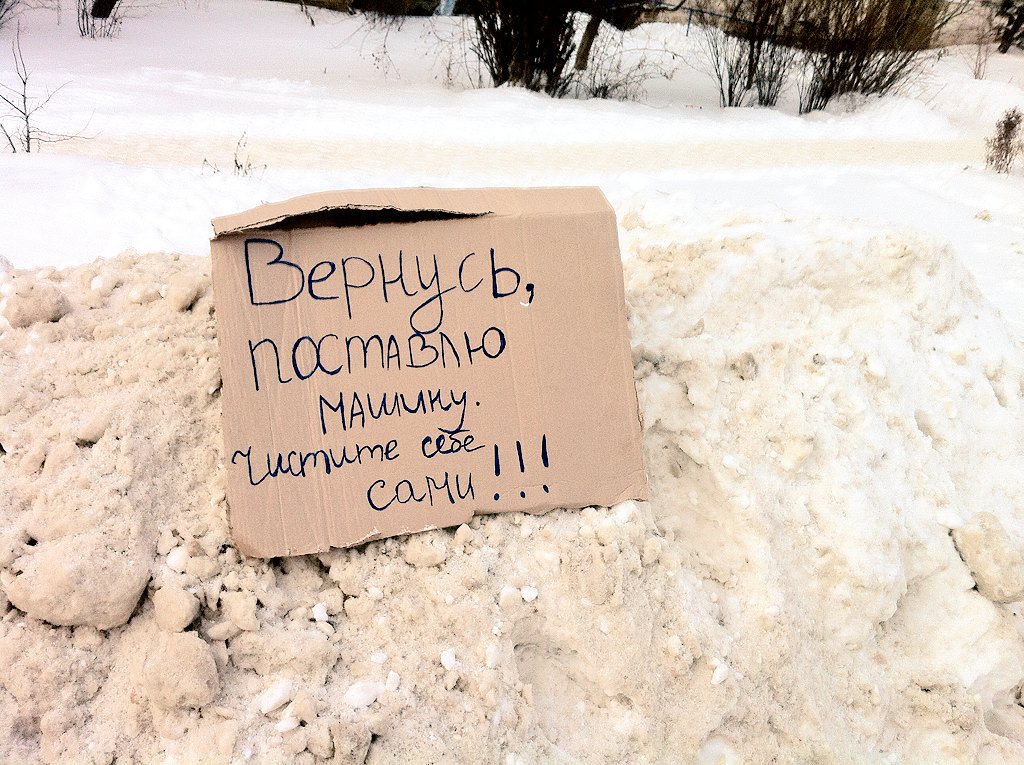 Вернусь,
поставлю
машину.
Чистите себе
сами!!!